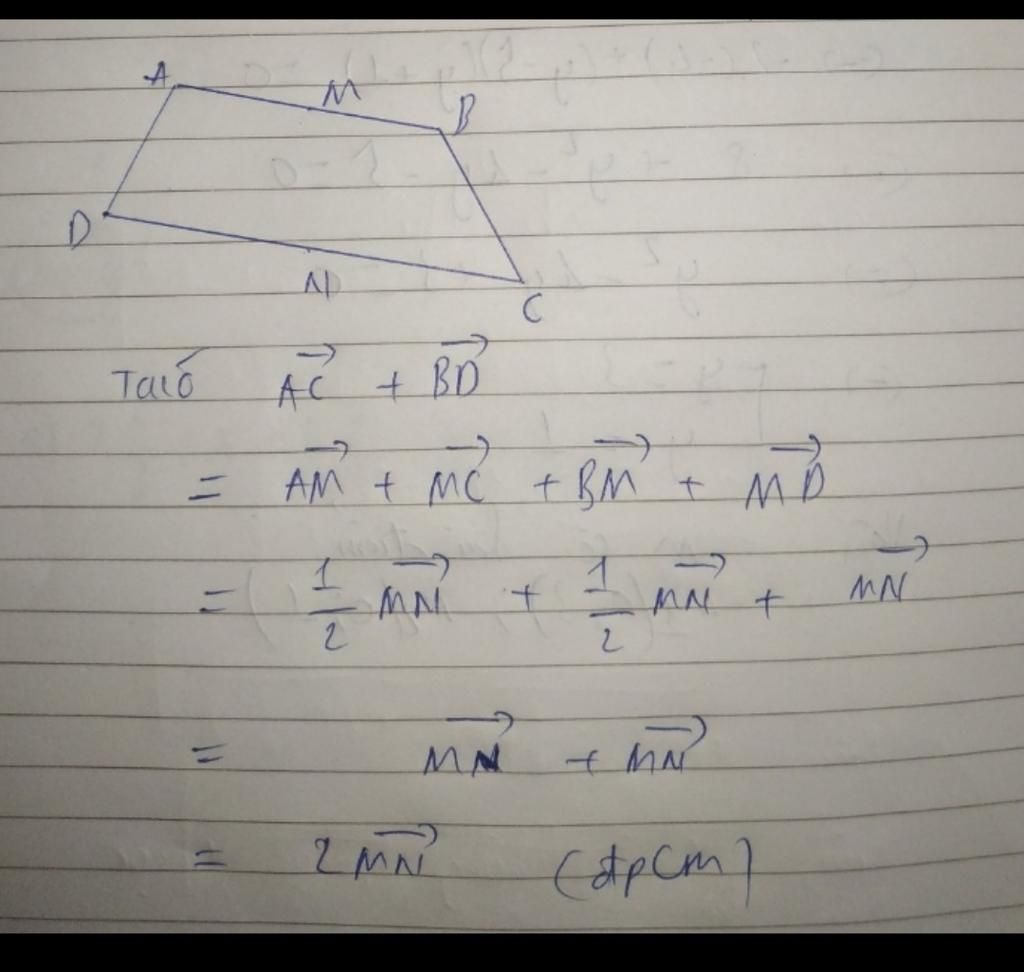 A M B
D N C
Ta có $\overrightarrow{AC} + \overrightarrow{BD}$
$= \overrightarrow{AM} + \overrightarrow{MC} + \overrightarrow{BM} + \overrightarrow{MD}$
$= \frac{1}{2}\overrightarrow{MN} + \frac{1}{2}\overrightarrow{MN} + \overrightarrow{MN}$
$= \overrightarrow{MN} + \overrightarrow{MN}$
$= 2\overrightarrow{MN}$ (đpcm)